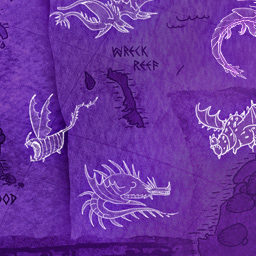 WRECK
REEF
OOD